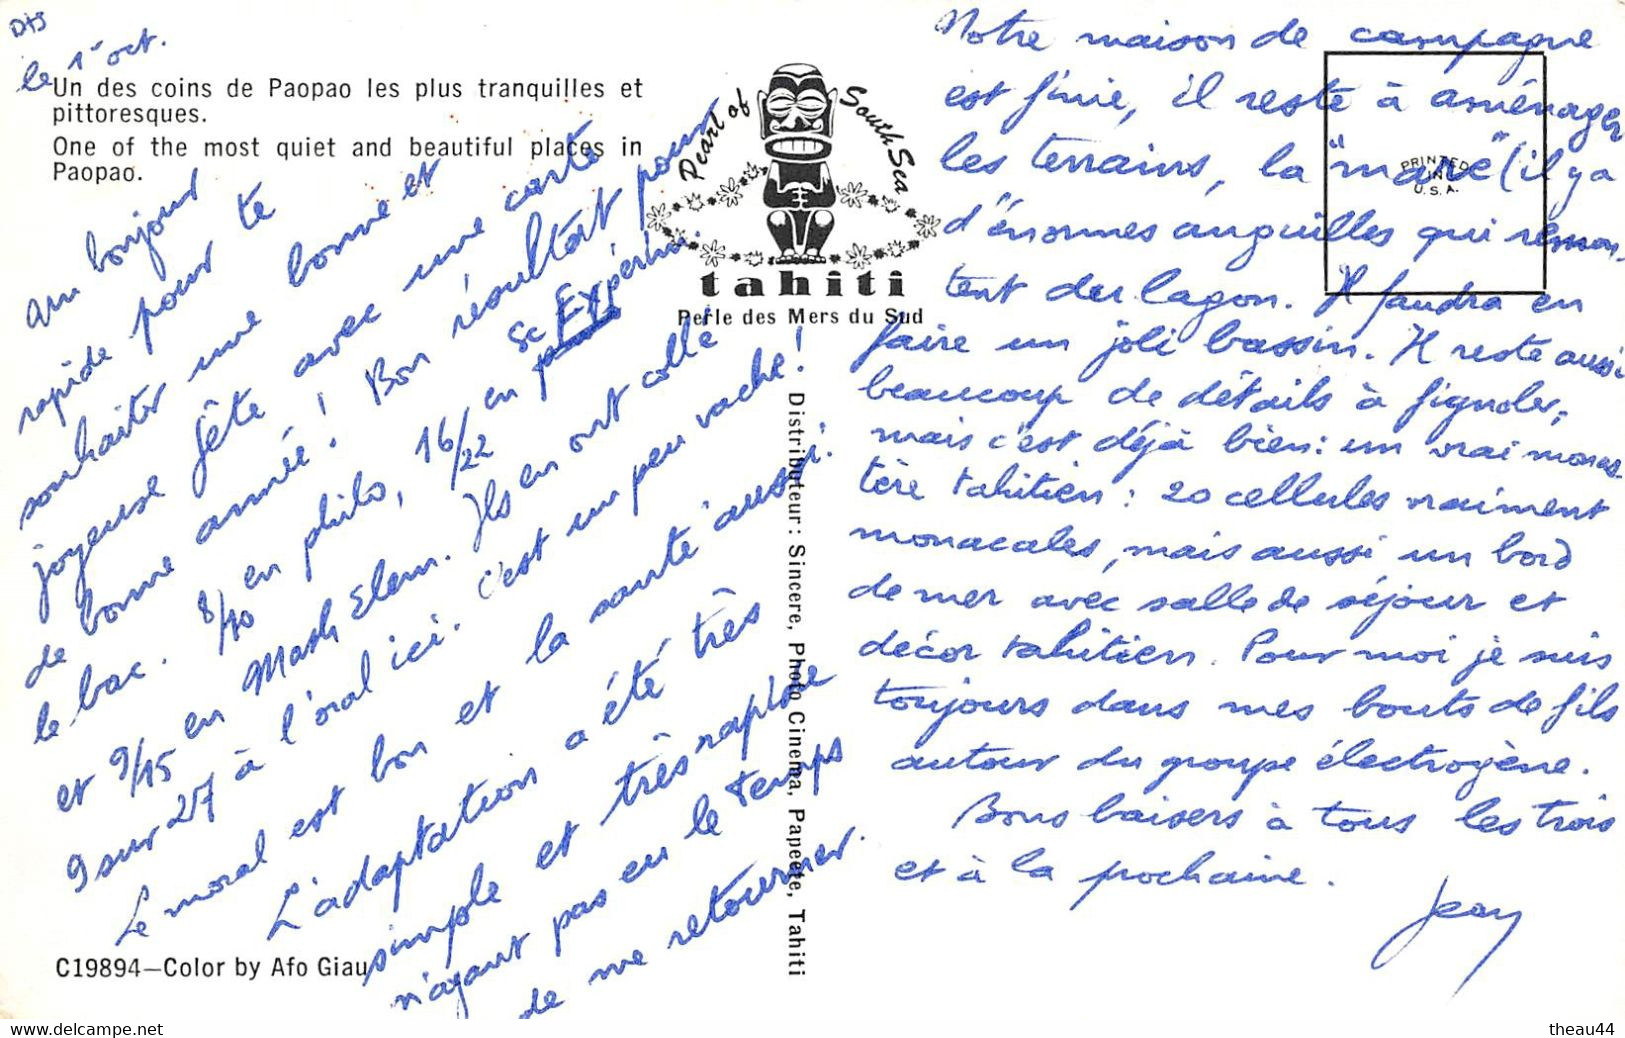 DTS
le 1er oct.
Un des coins de Paopao les plus tranquilles et
pittoresques.
One of the most quiet and beautiful places in
Paopao.
Pearl of South Sea
tahiti
Perle des Mers du Sud
PRINTED
IN
U.S.A.
un bonjour
rapide pour te
souhaiter une bonne et
joyeuse fête avec une carte
de bonne année ! Bon résultat pour
le bac. 8/10 en philo, 16/22 en Sc Expérim.
et 9/15 en Math Elem. Ils en ont collé
9 sur 27 à l'oral ici. c'est un peu vache !
Le moral est bon et la santé aussi.
L'adaptation a été très
simple et très rapide
n'ayant pas eu le temps
de me retourner.
Notre maison de campagne
est finie, il reste à aménager
les terrains, la "mare" (il y a
d'énormes anguilles qui remon-
tent du lagon. Il faudra en
faire un joli bassin. Il reste aussi
beaucoup de détails à fignoler,
mais c'est déjà bien : un vrai monas-
tère tahitien : 20 cellules vraiment
monacales, mais aussi un bord
de mer avec salle de séjour et
décor tahitien. Pour moi je suis
toujours dans mes bouts de fils
autour du groupe électrogène.
Bons baisers à tous les trois
et à la prochaine.
Jean
Distributeur: Sincere, Photo Cinema, Papeete, Tahiti
C19894—Color by Afo Giau
www.delcampe.net
theau44